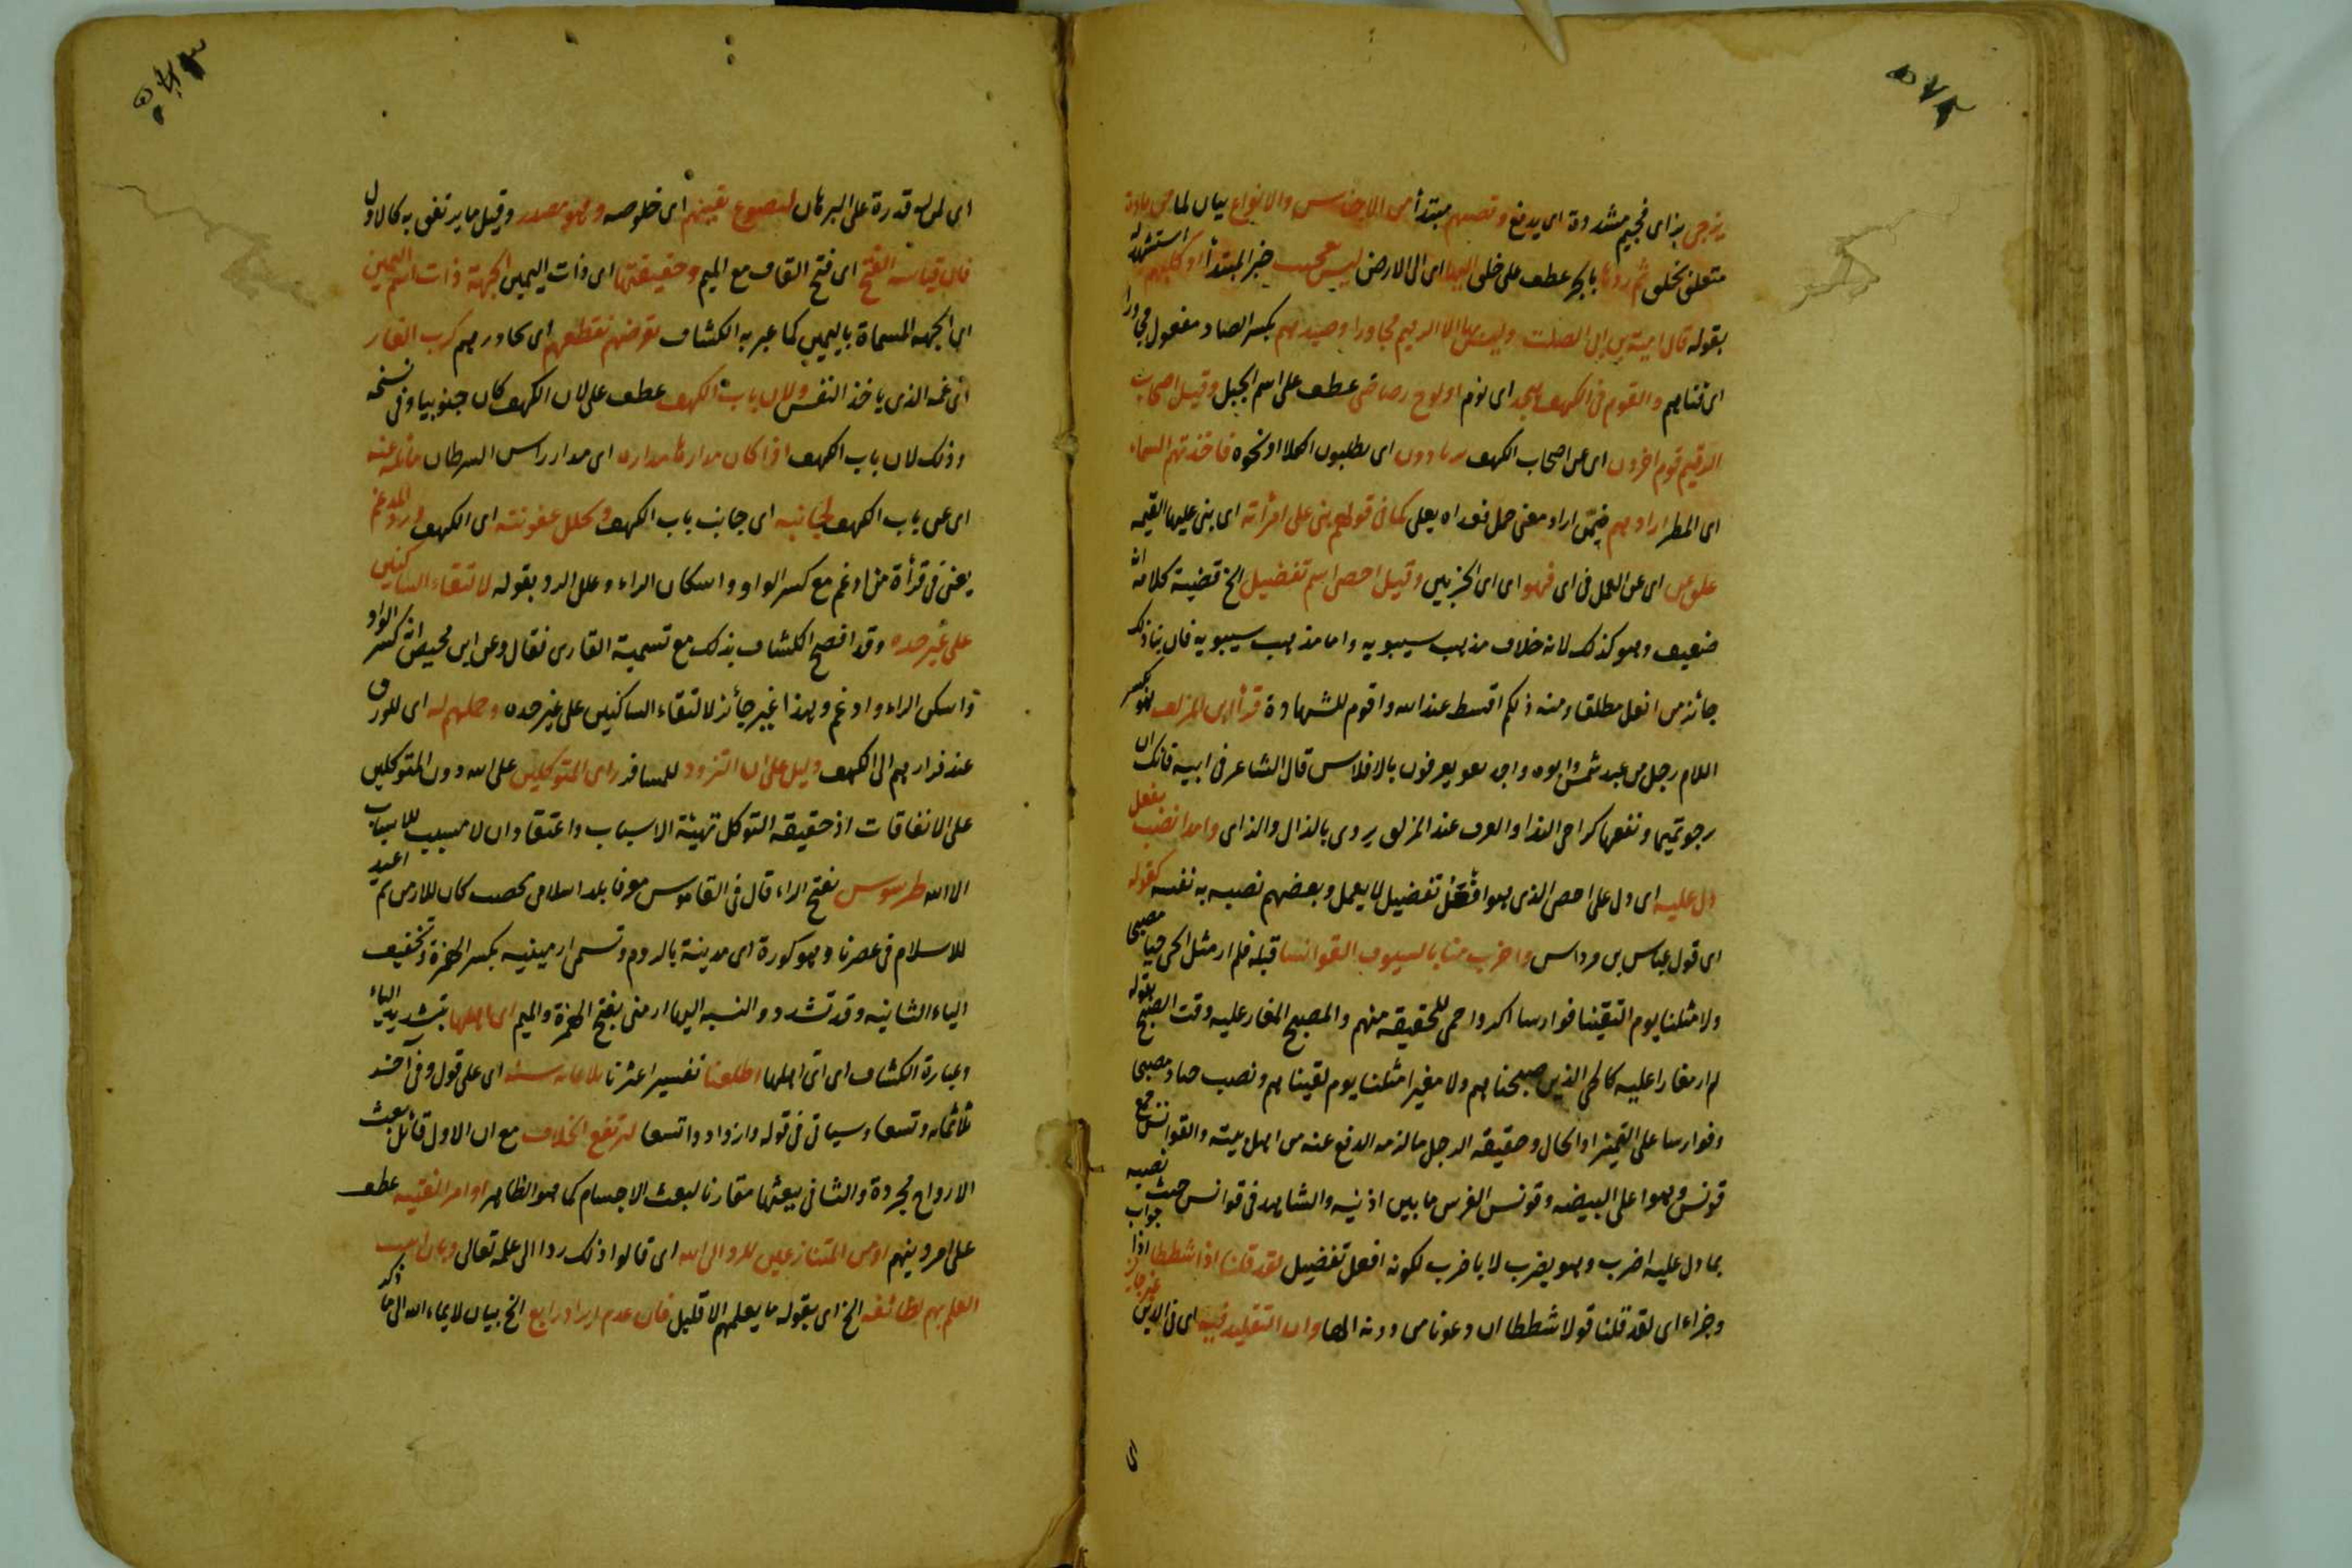 يزجى بزاى فجيم مشددة اى يدفع وقصتهم مبتدأ من الاجناس والانواع بيان لما من مادة
متعلق بخلق ثم ردها بالجر عطف على خلق اليها اى الى الارض ليس بعجيب خبر المبتدأ او كلبهم استشهد له
بقوله قال امية بن ابى الصلت وليس بها الا الرقيم مجاورا وصيدهم بكسر الصاد مفعول مجاورا
اى فنايهم والقوم فى الكهف همجد اى نوم او لوح رصاصى عطف على اسم الجبل وقيل اصحاب
الرقيم قوم اخرون اى عن اصحاب الكهف يرتادون اى يطلبون الكلا او نحوه فاخذتهم السماء
اى المطر اراد بهم ضمّن اراد معنى حمل فعداه بعلى كما فى قولهم بنى على امرأته اى بنى عليها القبة
علق عن اى عن العمل فى اى فهو اى اى الحزبين وقيل احصى اسم تفضيل الخ قضية كلامه انه
ضعيف وهو كذلك لانه خلاف مذهب سيبويه واما مذهب سيبويه فان بناء ذلك
جائز من افعل مطلقا ومنه ذلكم اقسط عند الله واقوم للشهادة قرأ ابن المزلق هو بكسر
اللام رجل من عبد شمس وابوه واجداده يعرفون بالافلاس قال الشاعر فى ابيه فانك ان
ترجو تميما ونفعها كراجى الندا والعرف عند المزلق يروى بالدال والذاى وامدا نصب بفعل
دل عليه اى دل على احصى الذى هو افعل تفضيل لا يعمل وبعضهم نصبه به نفسه كقوله
اى قول عباس بن مرداس واضرب منا بالسيوف القوانسا قبله فلم ار مثل الحى حيا مصبحا
ولا مثلنا يوم التقينا فوارسا اكر واحمى للحقيقة منهم والمصبح المغار عليه وقت الصبح بقوله
لم ار مغارا عليه كالحى الذين صبحناهم ولا مغيرا مثلنا يوم لقيناهم ونصب حيا ومصبحا
وفوارسا على التميز او الحال وحقيقة الرجل ما لزمه الدفع عنه من اهل بيته والقوانس جمع
قونس وهو اعلى البيضه وقونس الفرس ما بين اذنيه والشاهد فى قوانس حيث نصبه
بما دل عليه اضرب وهو يضرب لا باضرب لكونه افعل تفضيل لقد قلنا اذا شططا اذا جواب
وجزاء اى لقد قلنا قولا شططا ان دعونا من دونه الها وان التقليد فيه اى فى الدين غير جائز
اى لمن له قدرة على البرهان لنصوع يقينهم اى خلوصه وهو مصدر وقيل ما يرتفق به كالاول
فان قياسه الفتح اى فتح القاف مع الميم وحقيقتها اى ذات اليمين الجهة ذات اسم اليمين
اى الجهة المسماة باليمين كما عبر به الكشاف تقرضهم تقطعهم اى تجاوزهم كرب الغار
اى غمه الذى ياخذ النفس ولان باب الكهف عطف على لان الكهف كان جنوبيا وفى نسخة
وذلك لان باب الكهف اذا كان مدارها مداره اى مدار راس السرطان مائلة عنه
اى عن باب الكهف لجانبه اى جانب باب الكهف وتحلل عفونته اى الكهف ورد المدغم
يعنى فى قرأة من ادغم مع كسر الواو واسكان الراء وعلل الرد بقوله لالتقاء الساكنين
على غير حده وقد افصح الكشاف بذلك مع تسمية القارى فقال وعن ابن محيصن انه كسر الواو
واسكن الراء وادغم وهذا غير جائز لالتقاء الساكنين على غير حده وحملهم له اى للورق
عند فرارهم الى الكهف دليل على ان التزود للمسافر راى المتوكلين على الله دون المتوكلين
على الانفاقات اذ حقيقة التوكل تهيئة الاسباب واعتقاد ان لا مسبب للاسباب
الا الله طرسوس بفتح الراء قال فى القاموس معرفا بلد اسلامى مخصب كان للارمن ثم اعيد
للاسلام فى عصرنا وهو كورة اى مدينة بالروم وتسمى ارمينيه بكسر الهمزة وتخفيف
الياء الثانيه وقد تشدد والنسبه اليها ارمنى بفتح الهمزة والميم اى اهلها بتشديد الياء
وعبارة الكشاف اى اى اهلها اطلعنا تفسير اعثرنا ثلاثمائه سنه اى على قول وفى آخذ
ثلاثمائه وتسعا وسياتى فى قوله وازدادوا تسعا ليرتفع الخلاف مع ان الاول قائل ببعث
الارواح مجردة والثانى ببعثها مقارنا لبعث الاجسام كما هو الظاهر او امر الفتية عطف
على امر دينهم او من المتنازعين للرد الى الله اى قالوا ذلك ردا الى علمه تعالى وبان اثبت
العلم بهم لطائفه الخ اى بقوله ما يعلمهم الا قليل فان عدم ايراد رابع الخ بيان لايماء الله الى ما ذكر